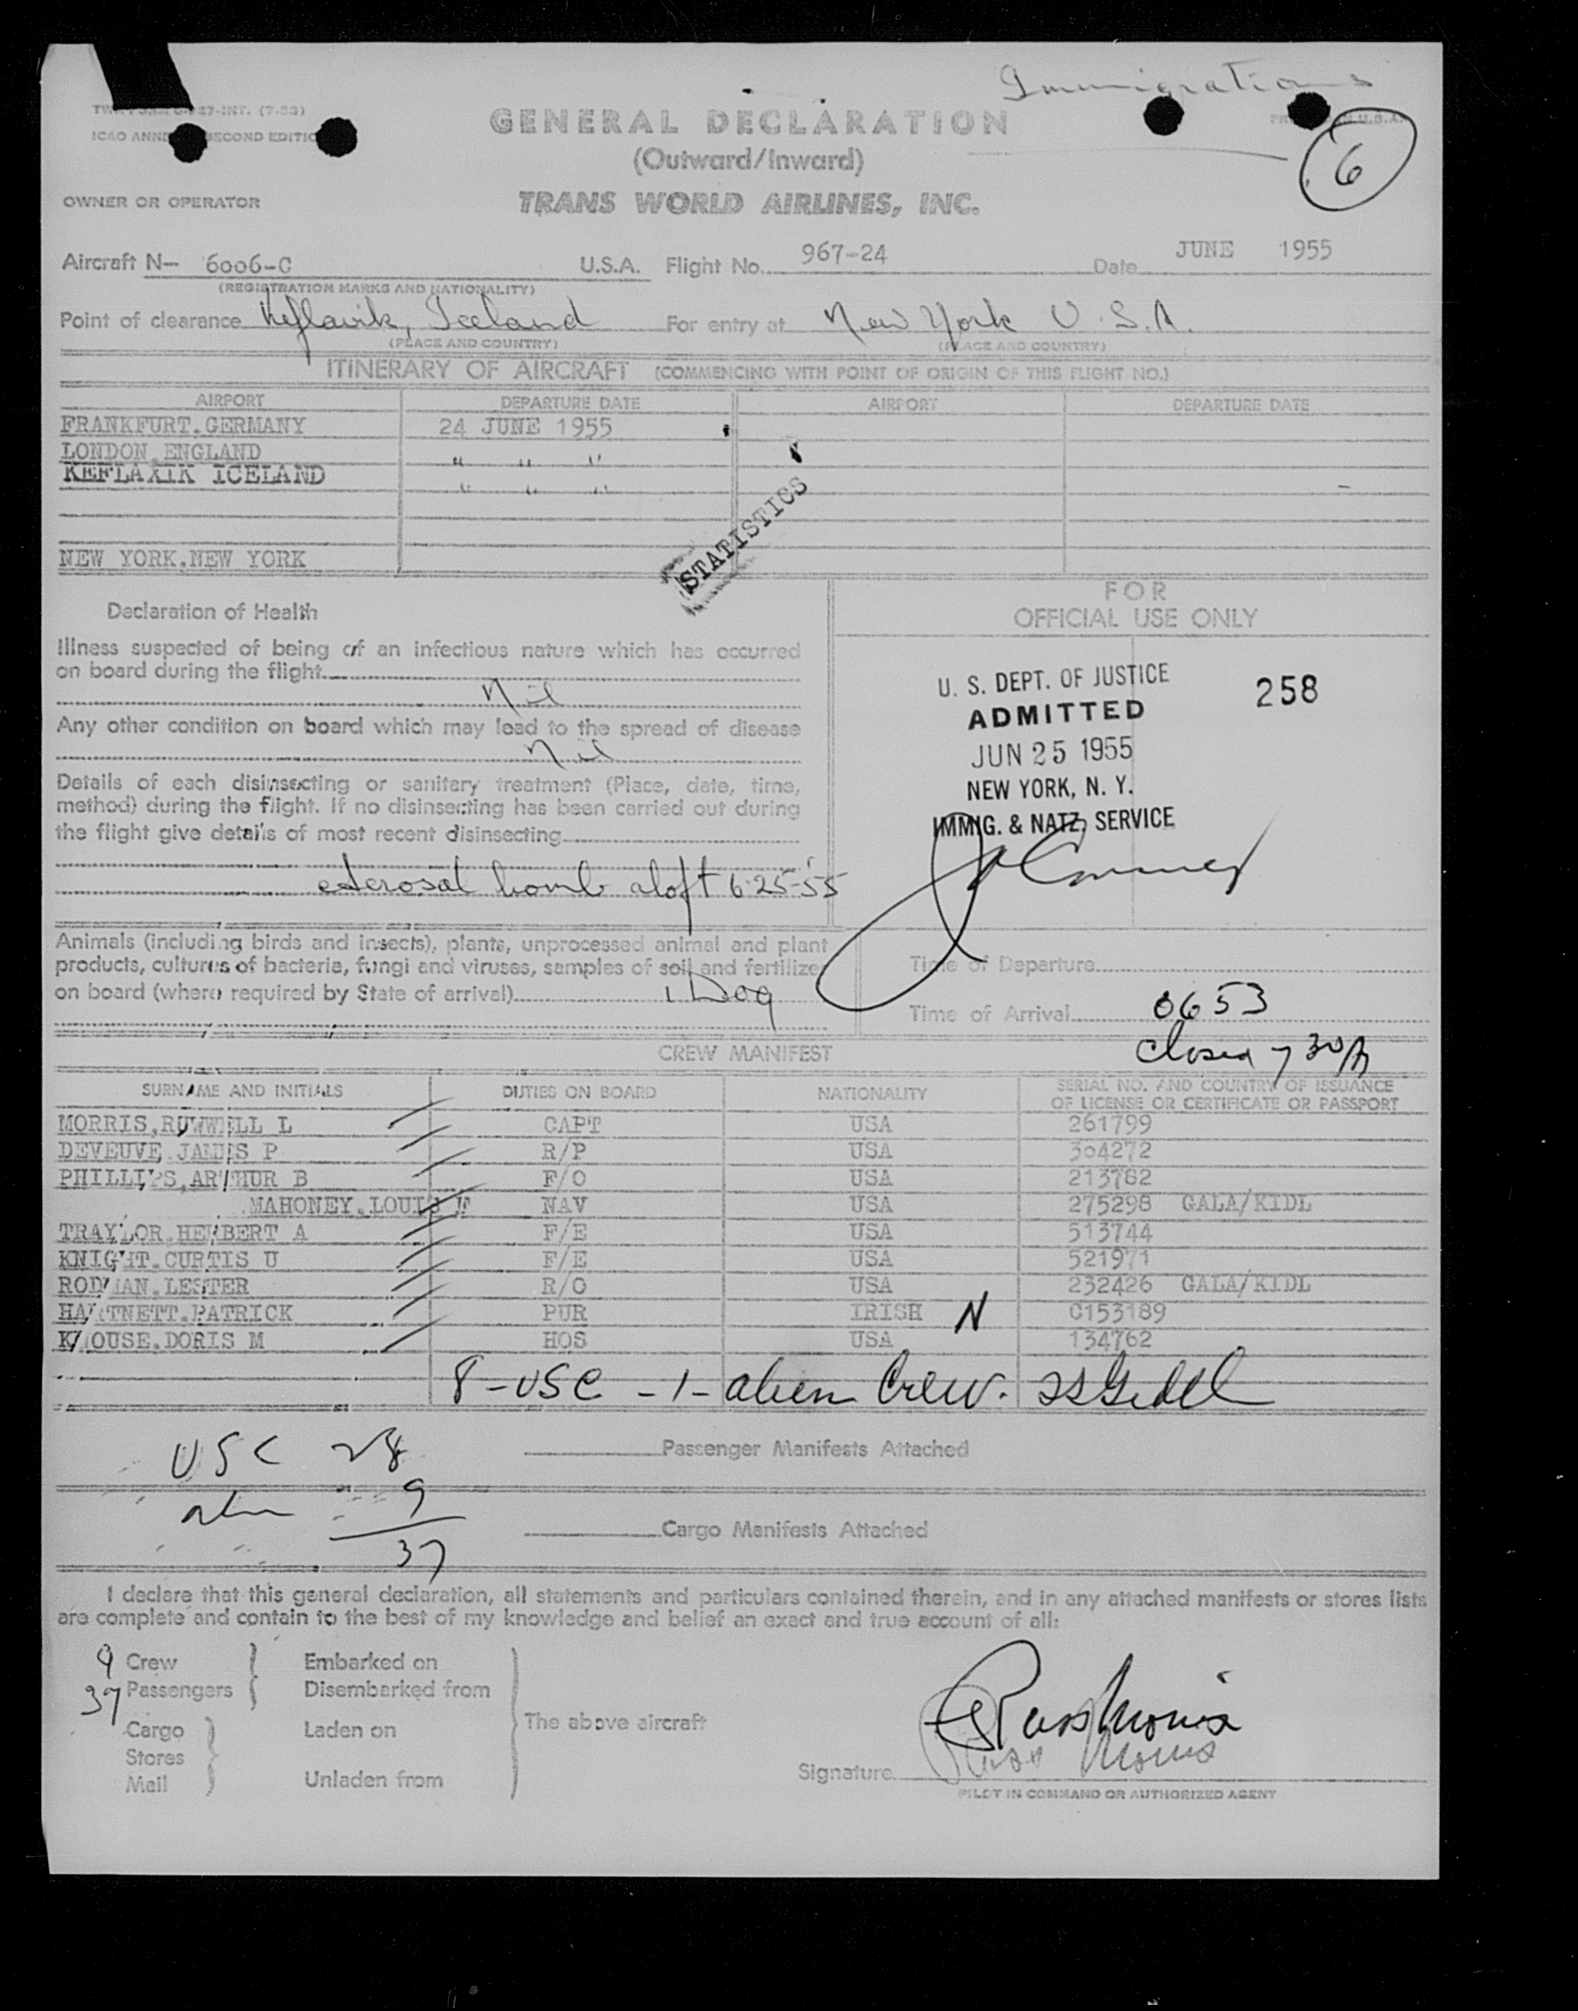 Immigrations
GENERAL DECLARATION
(Outward/Inward)
6
OWNER OR OPERATOR
TRANS WORLD AIRLINES, INC.
Aircraft N— 6006-C U.S.A. Flight No. 967-24 Date JUNE 1955
(REGISTRATION MARKS AND NATIONALITY)
Point of clearance Keflavik, Iceland For entry at New York U.S.A.
(PLACE AND COUNTRY) (PLACE AND COUNTRY)
ITINERARY OF AIRCRAFT (COMMENCING WITH POINT OF ORIGIN OF THIS FLIGHT NO.)
AIRPORT DEPARTURE DATE AIRPORT DEPARTURE DATE
FRANKFURT.GERMANY 24 JUNE 1955
LONDON.ENGLAND " " "
KEFLAXIK ICELAND " " "
NEW YORK.NEW YORK
STATISTICS
FOR
OFFICIAL USE ONLY
Declaration of Health
Illness suspected of being of an infectious nature which has occurred
on board during the flight
Nil
Any other condition on board which may lead to the spread of disease
Nil
Details of each disinsecting or sanitary treatment (Place, date, time,
method) during the flight. If no disinsecting has been carried out during
the flight give details of most recent disinsecting
bomb aloft 6-25-55
U. S. DEPT. OF JUSTICE
ADMITTED
JUN 25 1955
NEW YORK, N. Y.
IMMIG. & NATZ. SERVICE
258
Animals (including birds and insects), plants, unprocessed animal and plant
products, cultures of bacteria, fungi and viruses, samples of soil and fertilizer
on board (where required by State of arrival) 1 Dog
Time of Departure
Time of Arrival 0653
closed 730A
CREW MANIFEST
SURNAME AND INITIALS DUTIES ON BOARD NATIONALITY SERIAL NO. AND COUNTRY OF ISSUANCE
OF LICENSE OR CERTIFICATE OR PASSPORT
MORRIS, L CAPT USA 261799
DEVEUVE JAMES P R/P USA 304272
PHILLIPS,ARTHUR B F/O USA 213762
MAHONEY.LOUIS F NAV USA 275298 GALA/KIDL
TRAYLOR.HERBERT A F/E USA 513744
KNIGHT.CURTIS U F/E USA 521971
RODMAN.LESTER R/O USA 232426 GALA/KIDL
HARTNETT.PATRICK PUR IRISH N C153189
KROUSE.DORIS M HOS USA 134762
8-USC -1- alien Crew.
USC 28
alien 9
37
Passenger Manifests Attached
Cargo Manifests Attached
I declare that this general declaration, all statements and particulars contained therein, and in any attached manifests or stores lists
are complete and contain to the best of my knowledge and belief an exact and true account of all:
9 Crew Embarked on
37 Passengers Disembarked from
Cargo Laden on
The above aircraft
Stores
Mail Unladen from
Russ Morris
Russ Morris
Signature
PILOT IN COMMAND OR AUTHORIZED AGENT